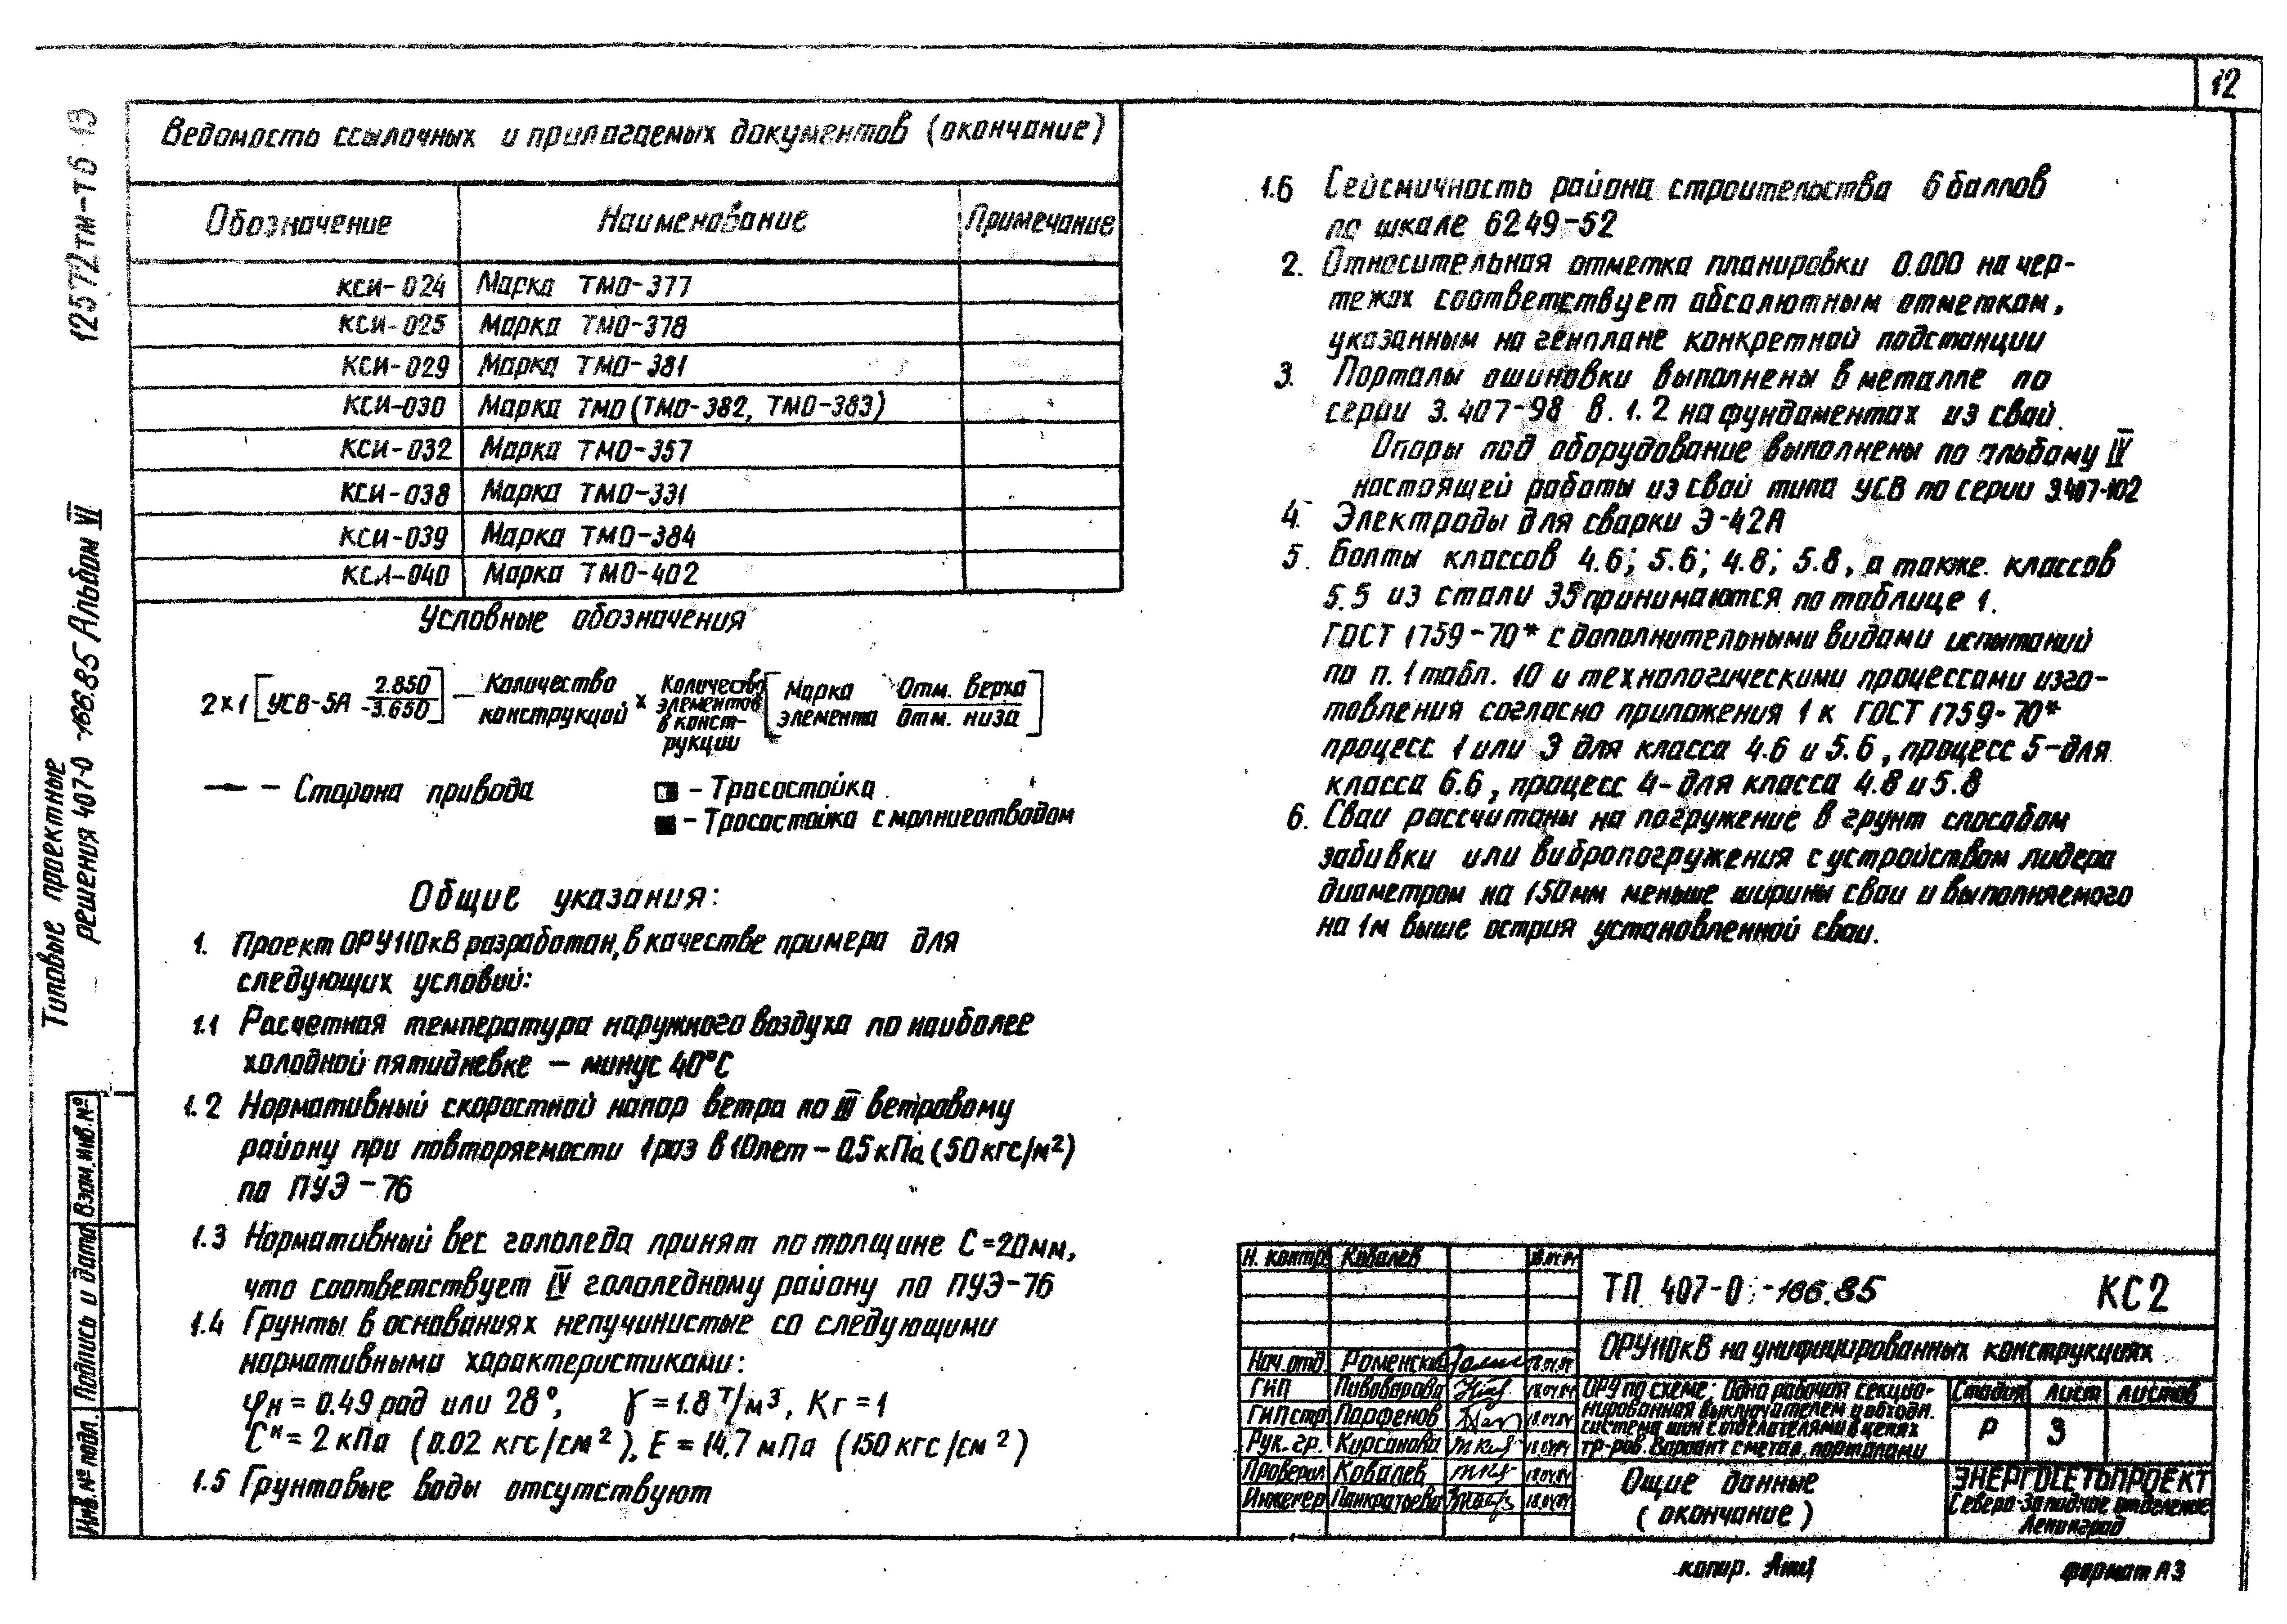 12
12572тм-т6 13
Типовые проектные
решения 407-0-166.85 Альбом VI
Ведомость ссылочных и прилагаемых документов (окончание)
Обозначение Наименование Примечание
КСИ-024 Марка ТМО-377
КСИ-025 Марка ТМО-378
КСИ-029 Марка ТМО-381
КСИ-030 Марка ТМО (ТМО-382, ТМО-383)
КСИ-032 Марка ТМО-357
КСИ-038 Марка ТМО-331
КСИ-039 Марка ТМО-384
КСИ-040 Марка ТМО-402
Условные обозначения
2×1 [УСВ-5А 2.850/-3.650] — Количество конструкций × Количество элементов в конструкции [Марка элемента Отм. верха/Отм. низа]
— Сторона привода
- Тросостойка
- Тросостойка с молниеотводом
Общие указания:
1. Проект ОРУ110кВ разработан, в качестве примера для
следующих условий:
1.1 Расчетная температура наружного воздуха по наиболее
холодной пятидневке — минус 40°С
1.2 Нормативный скоростной напор ветра по III ветровому
району при повторяемости 1 раз в 10 лет – 0,5 кПа (50 кгс/м²)
по ПУЭ-76
1.3 Нормативный вес гололеда принят по толщине С=20мм,
что соответствует IV гололедному району по ПУЭ-76
1.4 Грунты в основаниях непучинистые со следующими
нормативными характеристиками:
φн = 0.49 рад или 28°, γ = 1.8 т/м³, Кг = 1
Сн = 2 кПа (0.02 кгс/см²), Е = 14,7 мПа (150 кгс/см²)
1.5 Грунтовые воды отсутствуют
1.6 Сейсмичность района строительства 6 баллов
по шкале 6249-52
2. Относительная отметка планировки 0.000 на чер-
тежах соответствует абсолютным отметкам,
указанным на генплане конкретной подстанции
3. Порталы ошиновки выполнены в металле по
серии 3.407-98 в. 1.2 на фундаментах из свай.
Опоры под оборудование выполнены по альбому IV
настоящей работы из свай типа УСВ по серии 3.407-102
4. Электроды для сварки Э-42А
5. Болты классов 4.6; 5.6; 4.8; 5.8, а также классов
5.5 из стали 35 принимаются по таблице 1.
ГОСТ 1759-70* с дополнительными видами испытаний
по п. 1 табл. 10 и технологическими процессами изго-
товления согласно приложения 1 к ГОСТ 1759-70*
процесс 1 или 3 для класса 4.6 и 5.6, процесс 5-для
класса 6.6, процесс 4-для класса 4.8 и 5.8
6. Сваи рассчитаны на погружение в грунт способом
забивки или вибропогружения с устройством лидера
диаметром на 150мм меньше ширины сваи и выполняемого
на 1м выше острия установленной сваи.
Взам. инв. №
Подпись и дата
Инв. № подл.
Н. контр. Ковалев
Нач. отд. Роменский 18.04.84
ГИП Пивоварова 18.04.84
ГИП стр. Парфенов 18.04.84
Рук. гр. Кирсанова 18.04.84
Проверил Ковалев 18.04.84
Инженер Панкратьева 18.04.84
ТП 407-0-166.85 КС2
ОРУ110кВ на унифицированных конструкциях
ОРУ по схеме: Одна рабочая секцио-
нированная выключателем и обходн.
система шин с отделителями в цепях
тр-ров. Вариант с метал. порталами
Стадия Лист Листов
Р 3
Общие данные
(окончание)
ЭНЕРГОСЕТЬПРОЕКТ
Северо-Западное отделение
Ленинград
копир.
формат А3